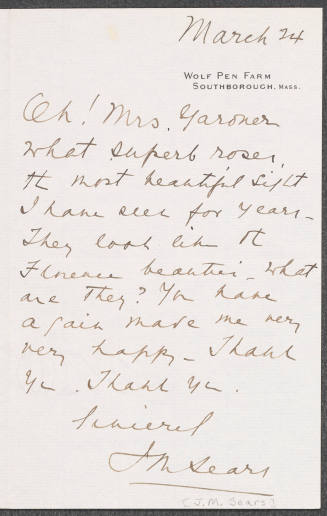 March 24
WOLF PEN FARM
SOUTHBOROUGH, MASS.
Oh! Mrs. Gardner
what superb roses,
the most beautiful sight
I have seen for years -
They look like the
Florence beauties - what
are They? You have
again made me very
very happy - Thank
you. Thank you.
Sincerely
J M Sears
(J. M. Sears)